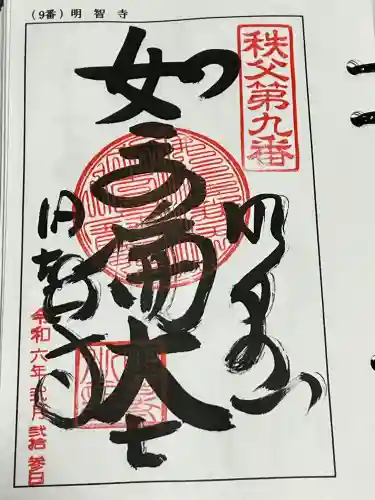 (9番)明智寺
秩父第九番
明星山
如意輪大士
明智寺
令和六年弐月弐拾参日